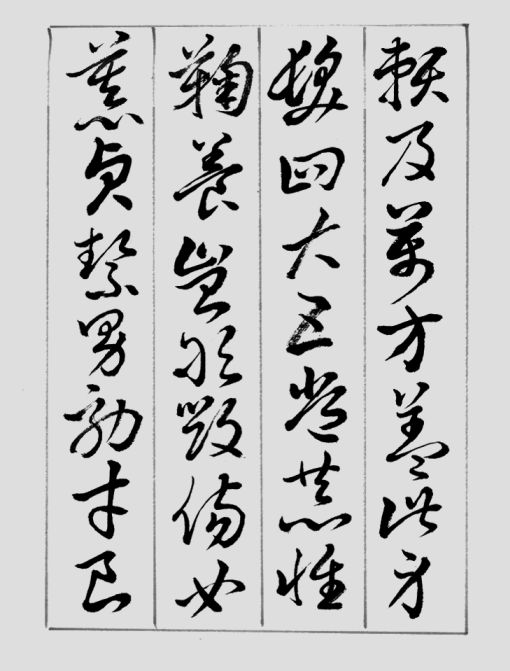 賴及萬方蓋此身
髮四大五常恭惟
鞠養豈敢毀傷女
慕貞絜男效才良